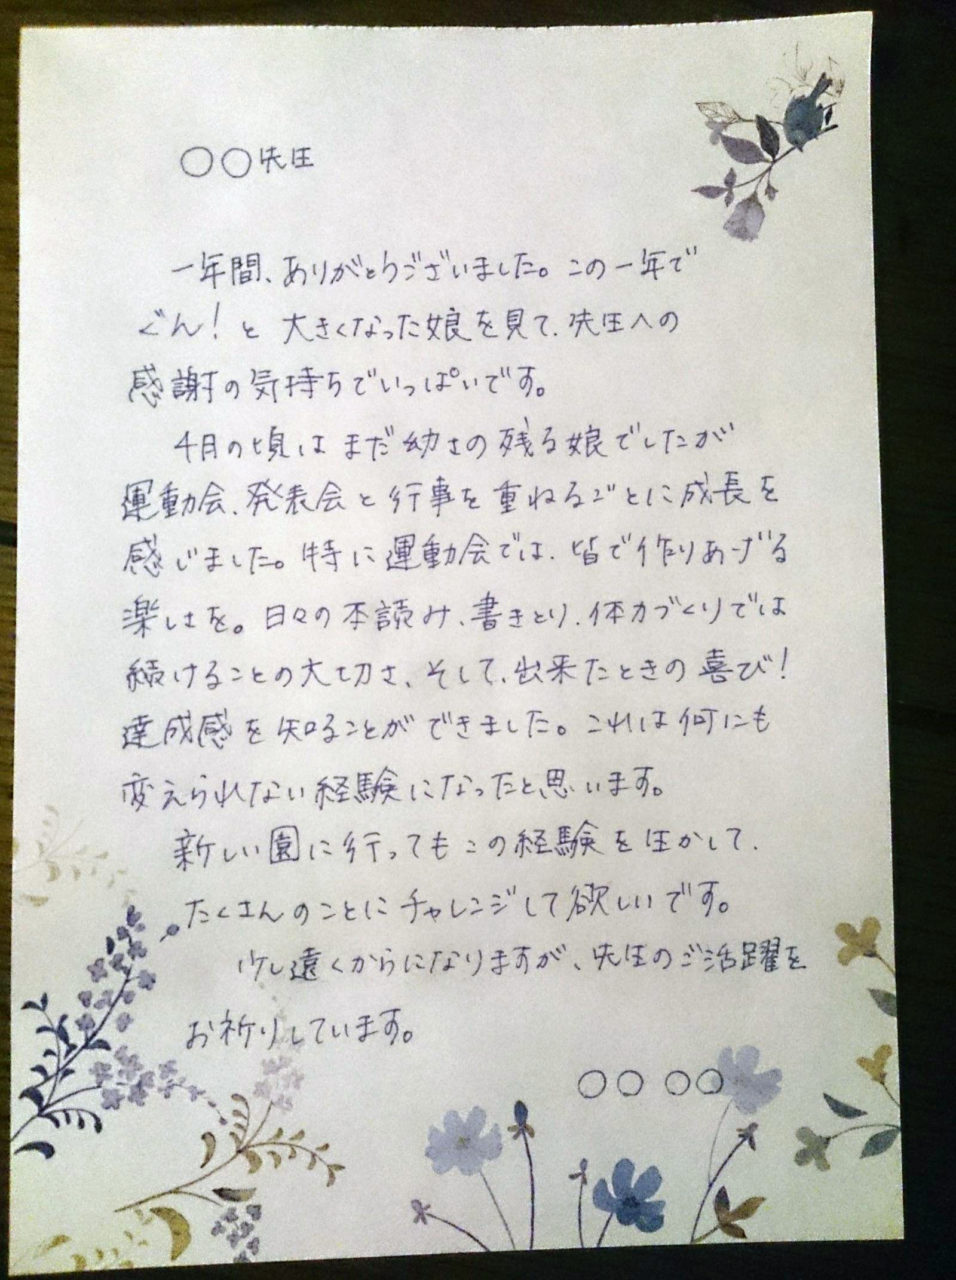 ○○先生
一年間、ありがとうございました。この一年で
ぐん!と大きくなった娘を見て、先生への
感謝の気持ちでいっぱいです。
4月の頃はまだ幼さの残る娘でしたが
運動会、発表会と行事を重ねるごとに成長を
感じました。特に運動会では、皆で作りあげる
楽しさを。日々の本読み、書きとり、体力づくりでは
続けることの大切さ、そして、出来たときの喜び!
達成感を知ることができました。これは何にも
変えられない経験になったと思います。
新しい園に行ってもこの経験を生かして、
たくさんのことにチャレンジして欲しいです。
少し遠くからになりますが、先生のご活躍を
お祈りしています。
○○ ○○